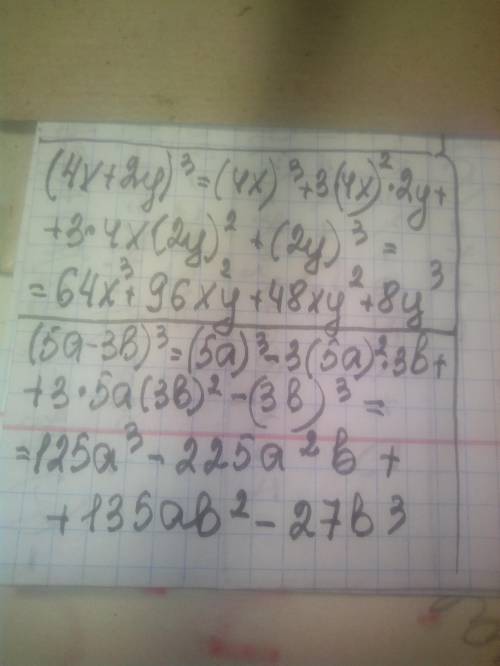 (4x+2y)³=(4x)³+3(4x)²·2y+
+3·4x(2y)²+(2y)³=
=64x³+96x²y+48xy²+8y³
(5a-3b)³=(5a)³-3(5a)²·3b+
+3·5a(3b)²-(3b)³=
=125a³-225a²b+
+135ab²-27b3